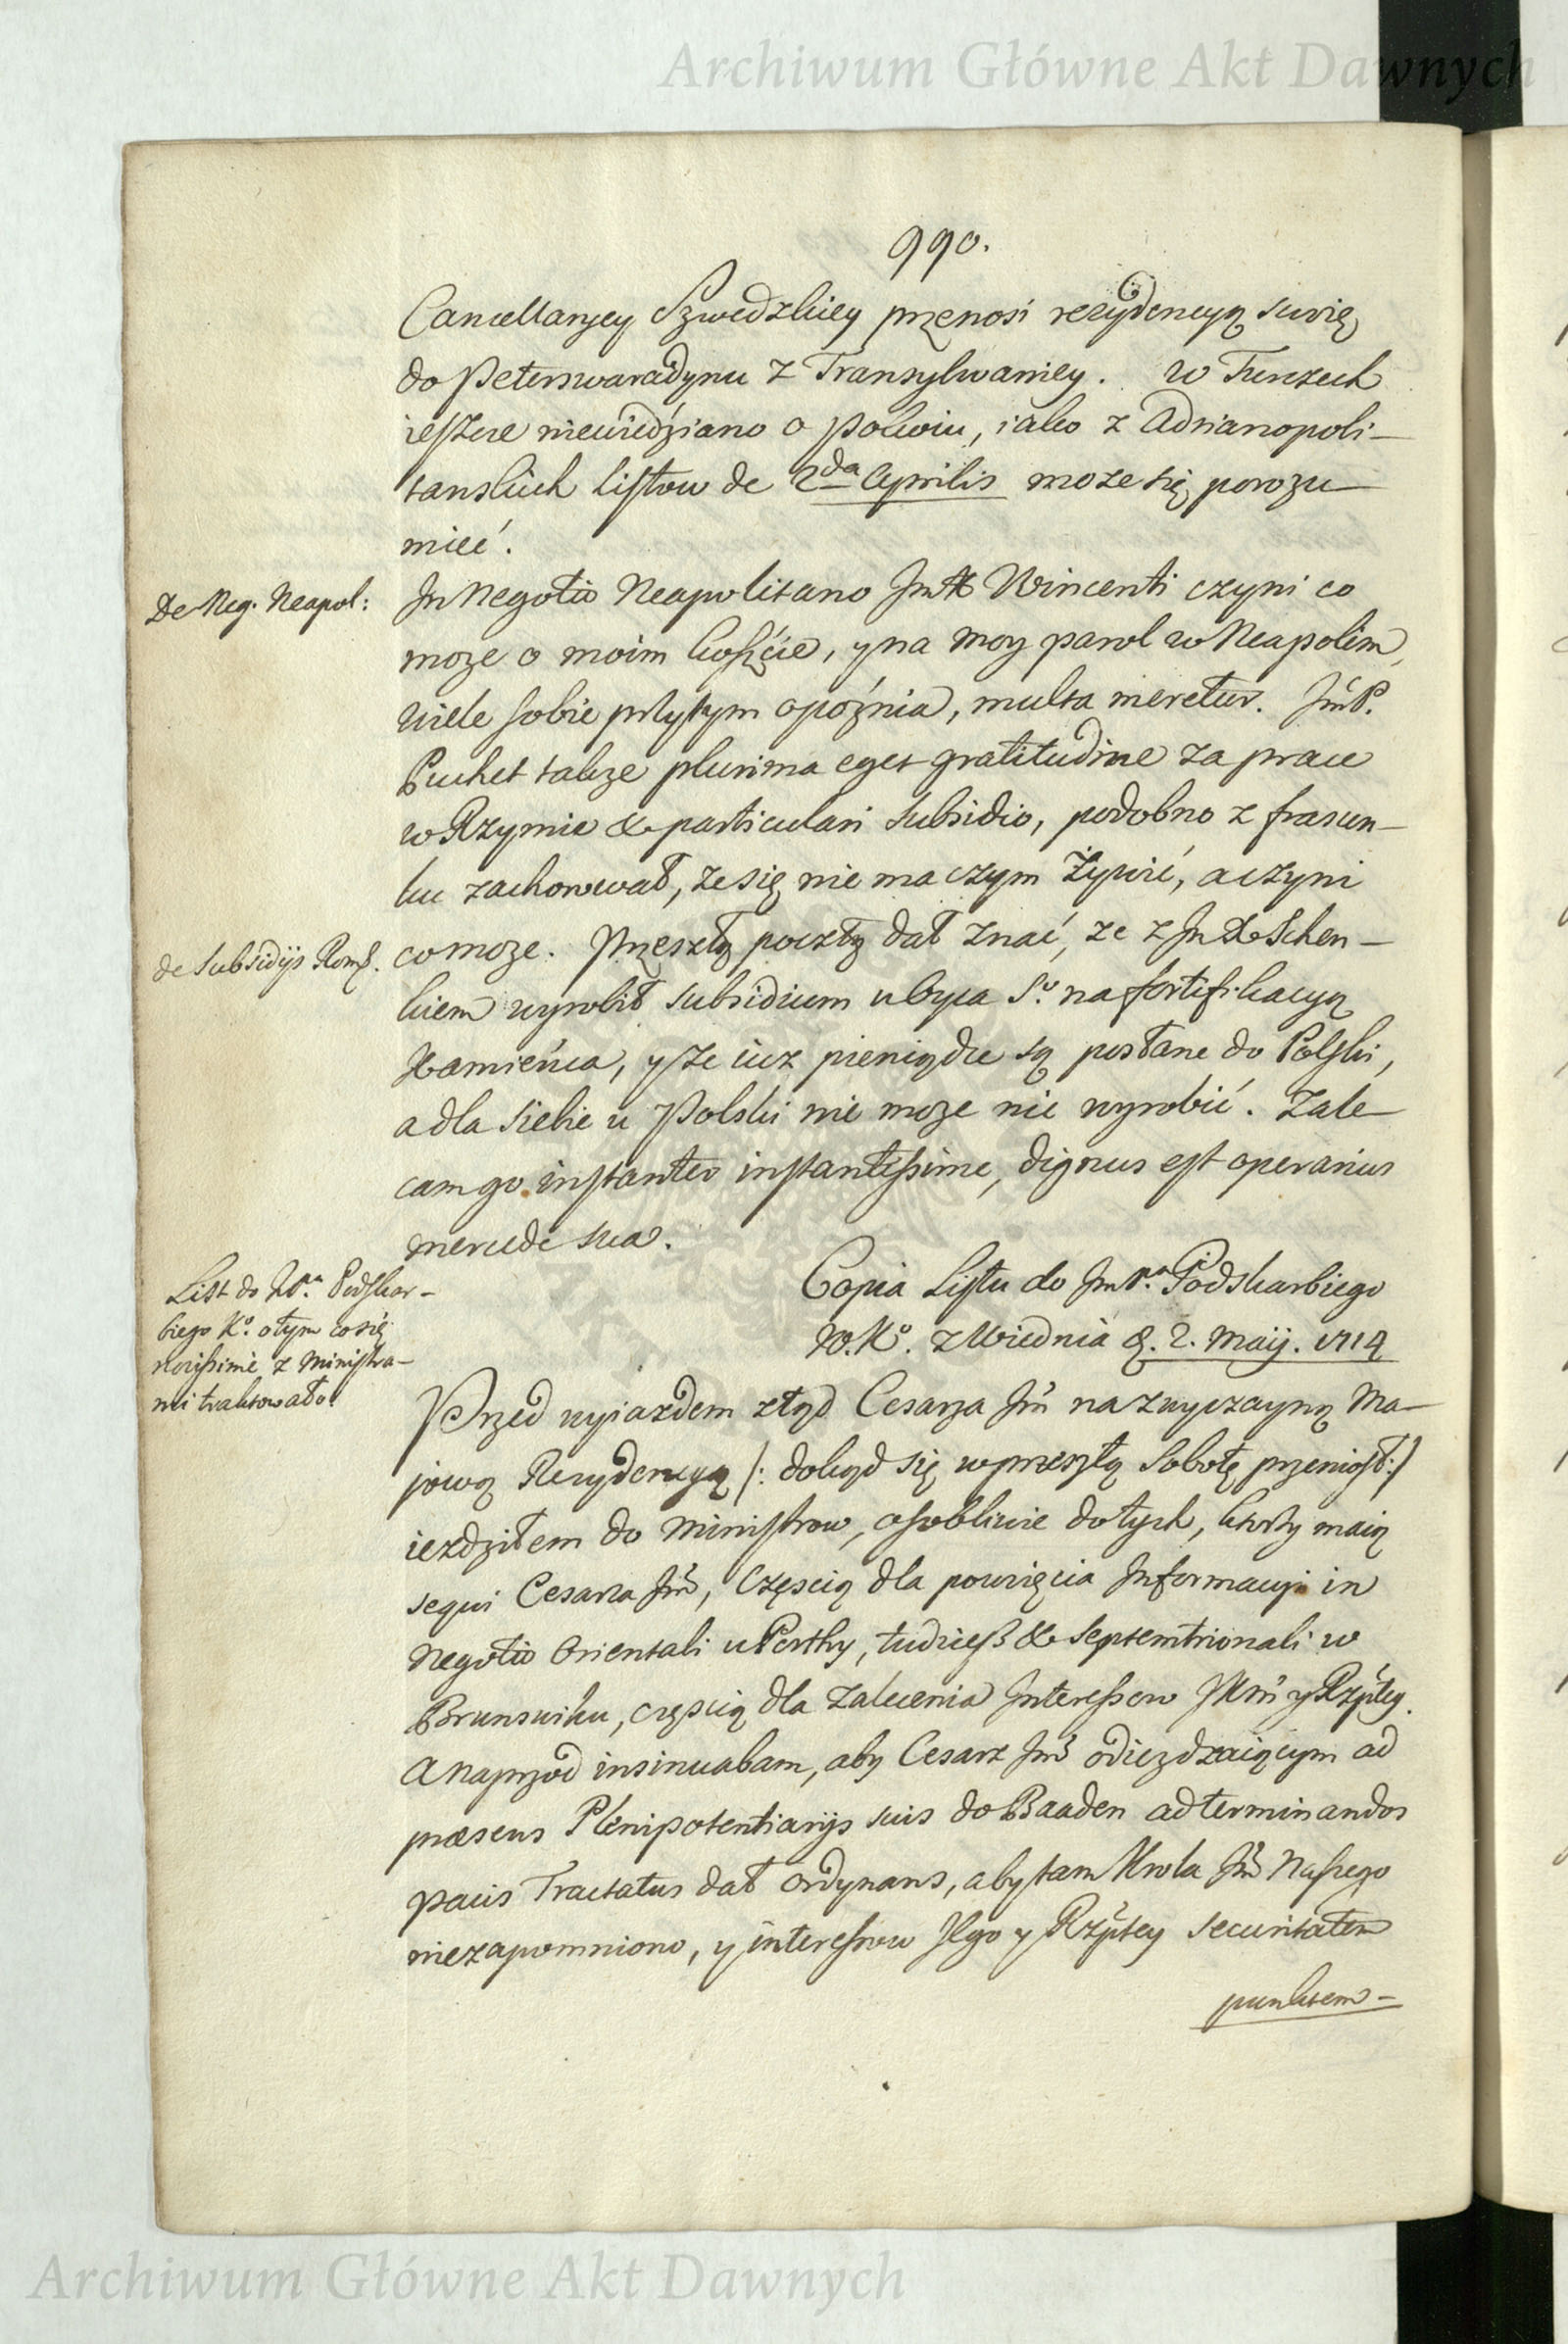 Archiwum Główne Akt Dawnych
990.
Cancellaryey Szwedzkiey przenosi rezydencyą swoię
do Peterswaradynu z Transylwaniey. w Turczech
ieszcze niewiedziano o pokoiu, iako z Adrianopoli-
tanskich listow de 2da Aprilis moze się porozu-
mieć.
De Neg. Neapol:
In Negotio Neapolitano Im X Wincenti czyni co
moze o moim koszcie, y na moy parol w Neapolim,
wiele sobie przytym opoznia, multa meretur. Im P.
Puchet takze plurima eget gratitudine za prace
w Rzymie & particulari subsidio, podobno z frasun-
ku zachorował, ze się nie ma czym żywić, a czyni
de Subsidijs Rom.
co moze. Przeszłą pocztą dał znać, ze z Im X Schen-
kiem wyrobił subsidium u Oyca S. na fortifikacyą
Kamieńca, y ze iuz pieniądze są posłane do Polski,
a dla siebie u Polski nie moze nic wyrobić. Zale-
cam go instanter instantissime, dignus est operarius
mercede sua.
List do JP.a Podskar-
biego K.o o tym co się
novissime z Ministra-
mi traktowało
Copia Listu do Im P.a Podskarbiego
W.K.o z Wiednia d. 2. Maij. 1714
Przed wyiazdem ztąd Cesarza Im na zwyczayną Ma-
jową Rezydencyą /: dokąd się w przeszłą Sobotę przeniosł:/
iezdziłem do Ministrow, osobliwie do tych, ktorzy maią
sequi Cesarza Im, Częscią dla powzięcia Informacyi in
Negotio Orientali u Porthy, tudziesz & Septemtrionali w
Brunswiku, częscią dla zalecenia Interessow JKM y Rzptey.
A Naprzod insinuabam, aby Cesarz Im odiezdzaiącym ad
præsens Plenipotentiarijs suis do Baaden ad terminandos
pacis Tractatus dał ordynans, aby tam Krola Im Naszego
niezapomniono, y interessow Jego y Rzptey securitatem
punktem-
Archiwum Główne Akt Dawnych